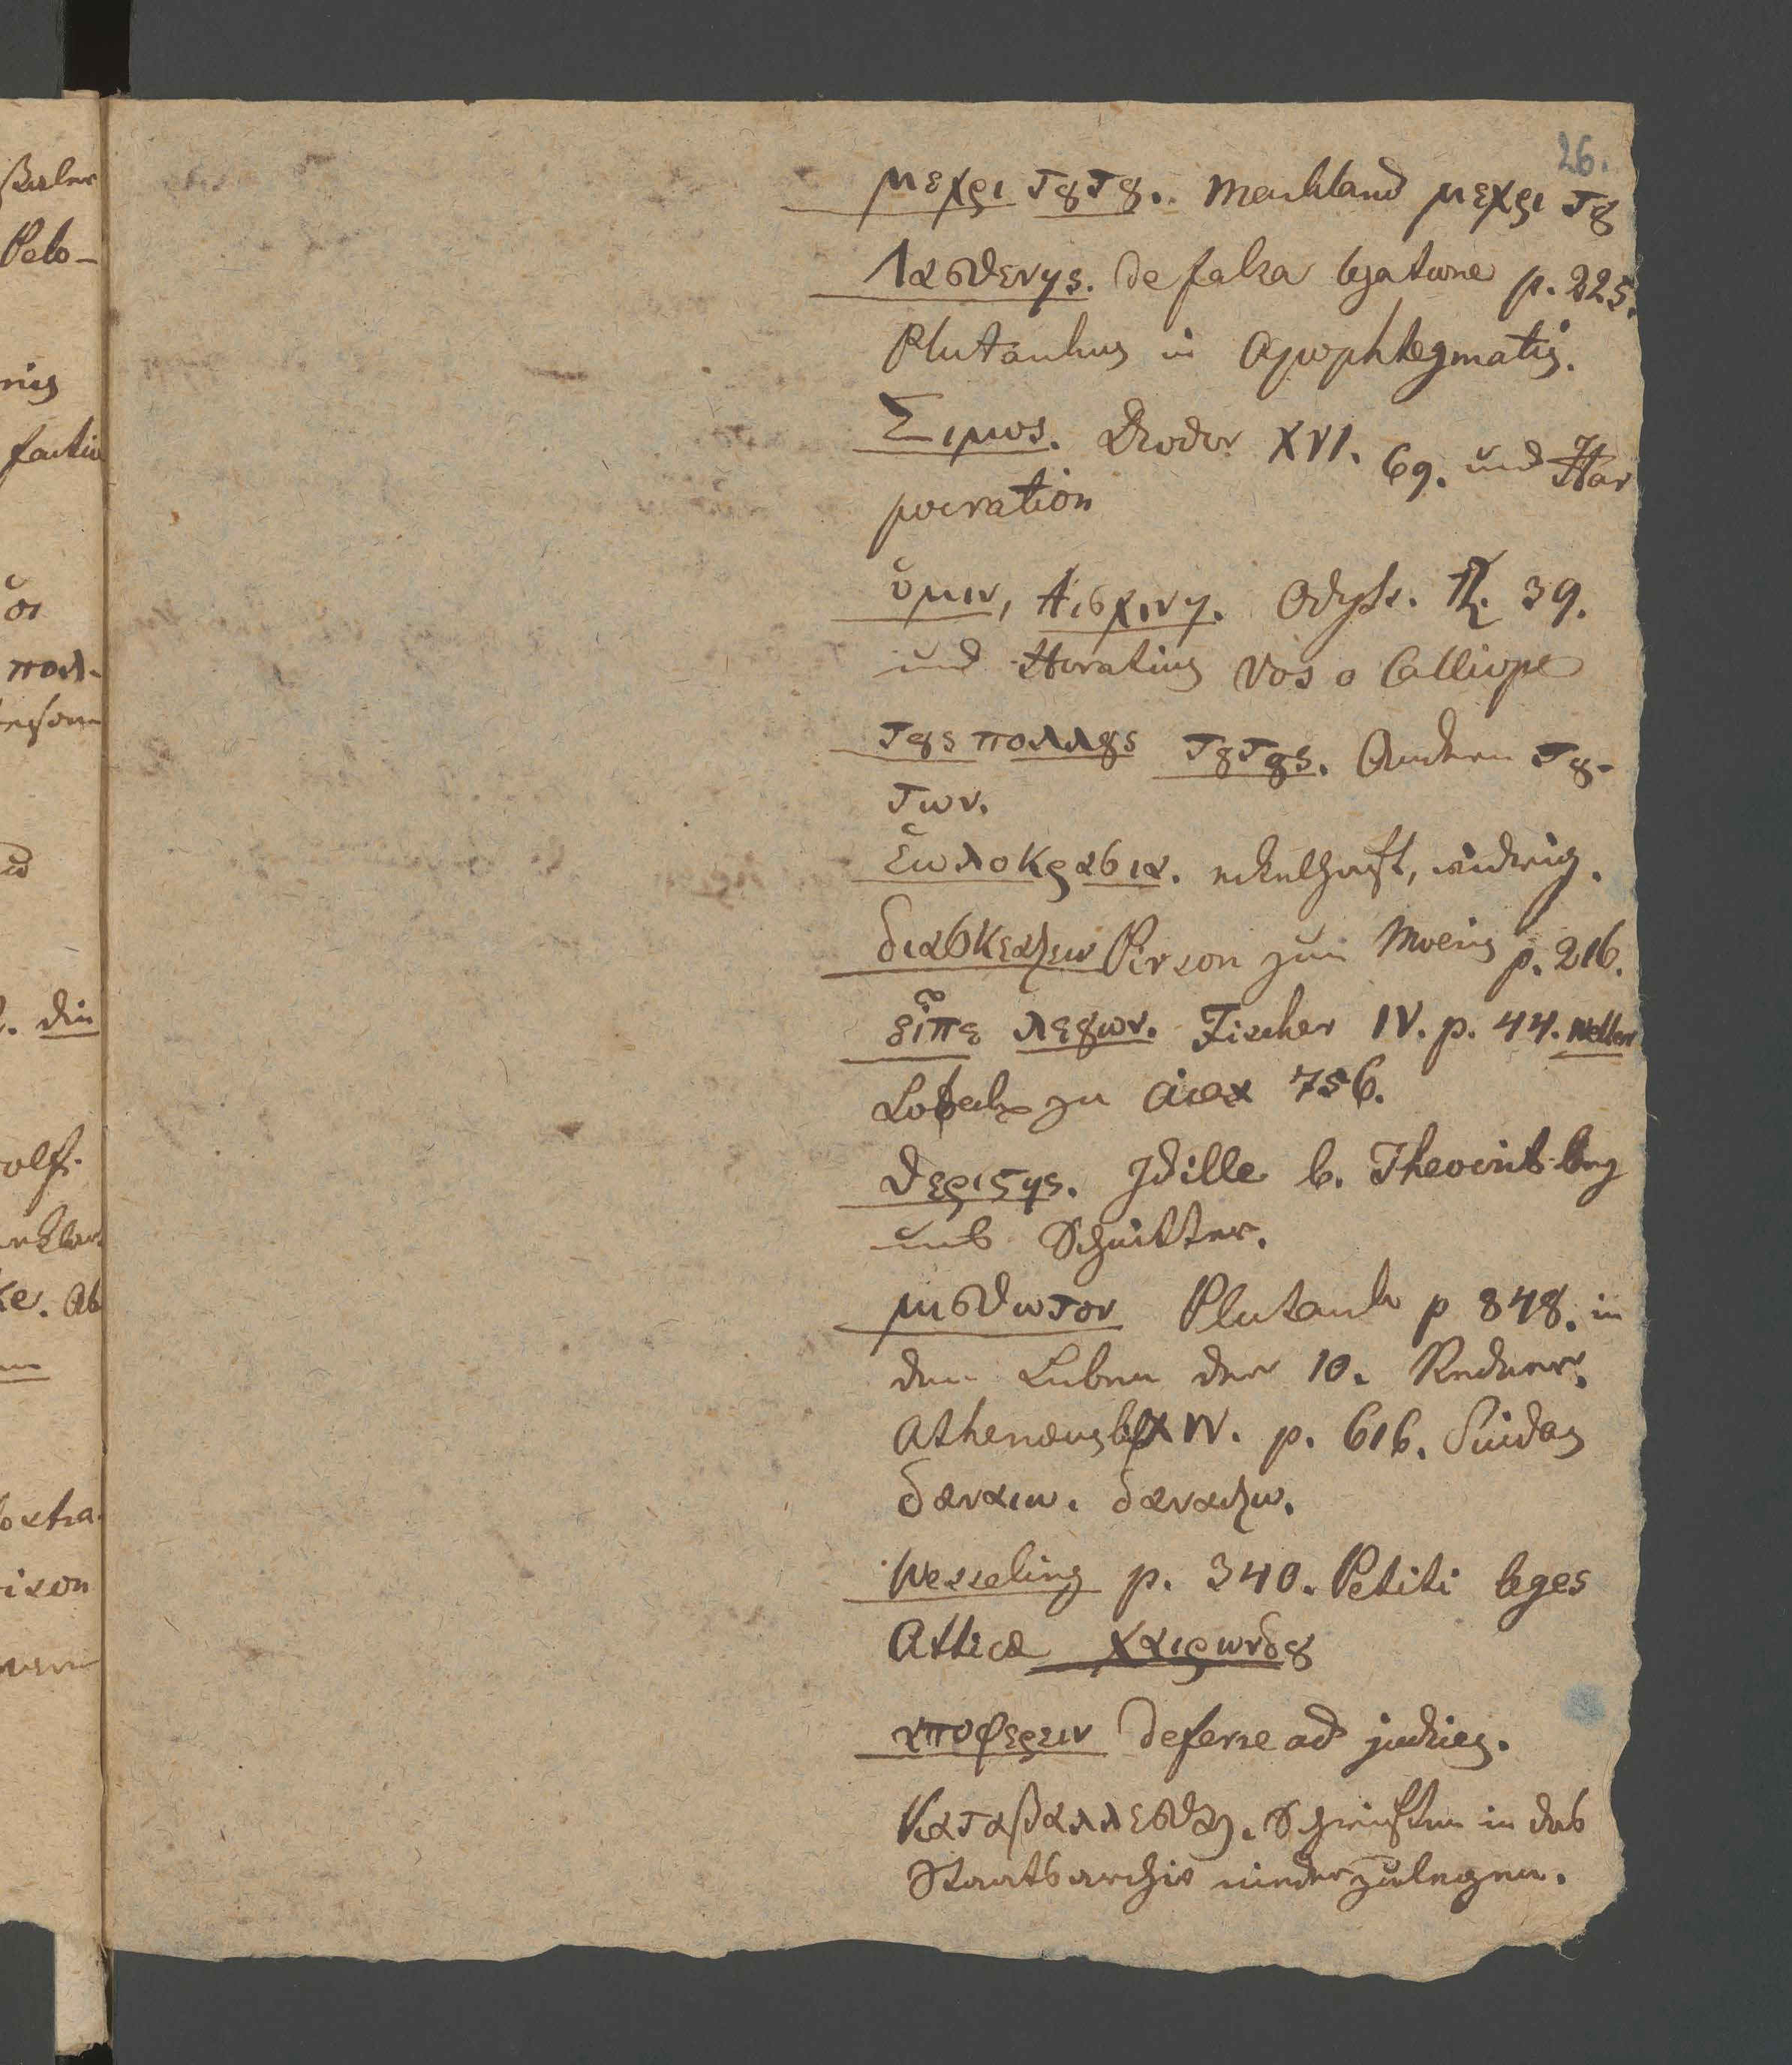 26.
μεχρι τȣτȣ. Markland μεχρι τȣ
Λασθενης. de falsa legatione p. 225.
Plutarchus in Apophtegmatis.
Σιμος. Diodor XVI. 69. und Har
pocration
ὑμιν, Αισχινη. Odyss. β. 39.
und Horatius Vos o Calliope
τȣς πολλȣς τȣτȣς. Andere τȣ-
των.
ἑωλοκρασια. eckelhaft, widrig.
διασκεαζειν Pierson zum Moeris p. 216.
εἶπε λεγων. Fischer IV. p. 44. Weller
Lobeck zu Aiax 756.
θεριςης. Idille b. Theocrit
uns Schnitter.
μισθωτον Plutarch p 848. in
den Leben der 10. Redner.
Athenæus XIV. p. 616. Suidas
δαναιω. δαναζω.
Wesseling p. 340. Petiti leges
Atticæ Χαιρωνδȣ
αποφερειν deferre ad judices.
Καταβαλλεσθαι. Schriften in das
Staatsarchiv niederzulegen.
ßerler
Pelo-
οι
πολ-
d. die
olf.
ke. Ab